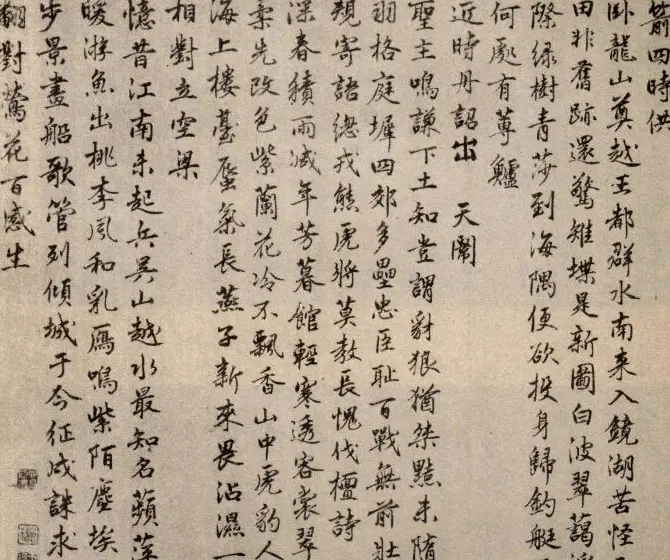 箭四時供
卧龍山奠越王都群水南来入鏡湖苦怪
田非舊跡還驚雉堞是新圖白波翠藹
際緑樹青莎到海隅便欲投身歸釣艇
何處有蓴鱸
近時丹詔出 天閽
聖主鳴謙下土知豈謂豺狼猶桀黠未隨
羽格庭墀四郊多壘忠臣恥百戰無前壯
寄語總戎熊虎將莫教長愧伐檀詩
深春積雨减年芳暮館輕寒透客裳翠
柔先改色紫蘭花冷不飄香山中虎豹人
海上樓臺蜃氣長燕子新来畏沾濕一
相對立空梁
憶昔江南未起兵吳山越水最知名蘋
暖游魚出桃李風和乳鴈鳴紫陌塵埃
步景畫船歌管列傾城于今征戍誅求
翻對鶯花百感生